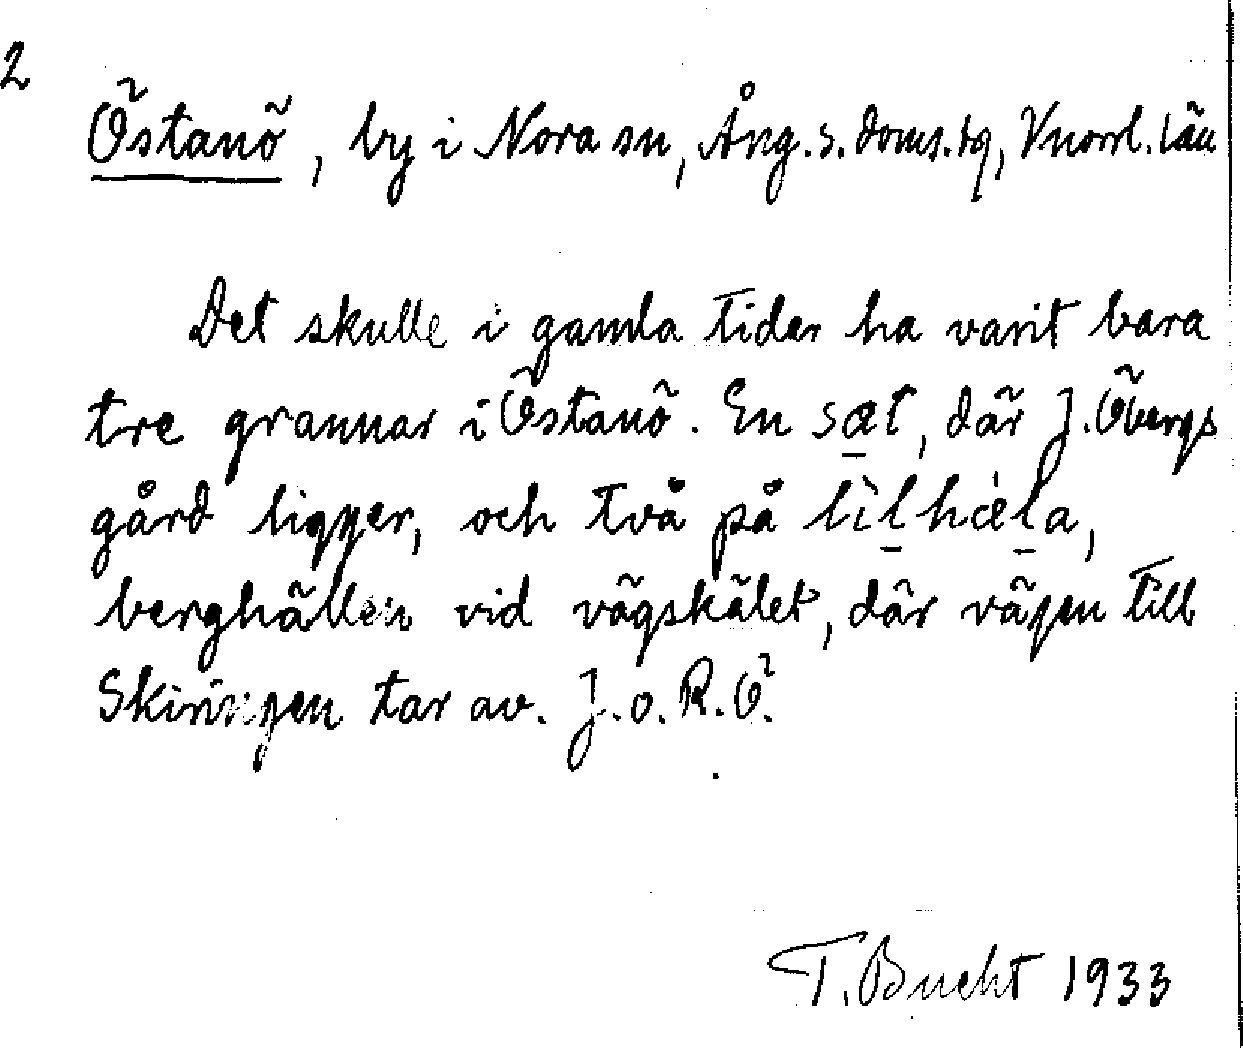 2
Östanö, by i Nora sn, Ång. s. doms. tg, Vnorrl. län
Det skulle i gamla tider ha varit bara
tre grannar i Östanö. En sæ̱t, där J. Öbergs
gård ligger, och två på lìl̠hæ̀l̠a,
berghällen vid vägskälet, där vägen till
Skiringen tar av. J. o. R. Ö.
T. Bucht 1933